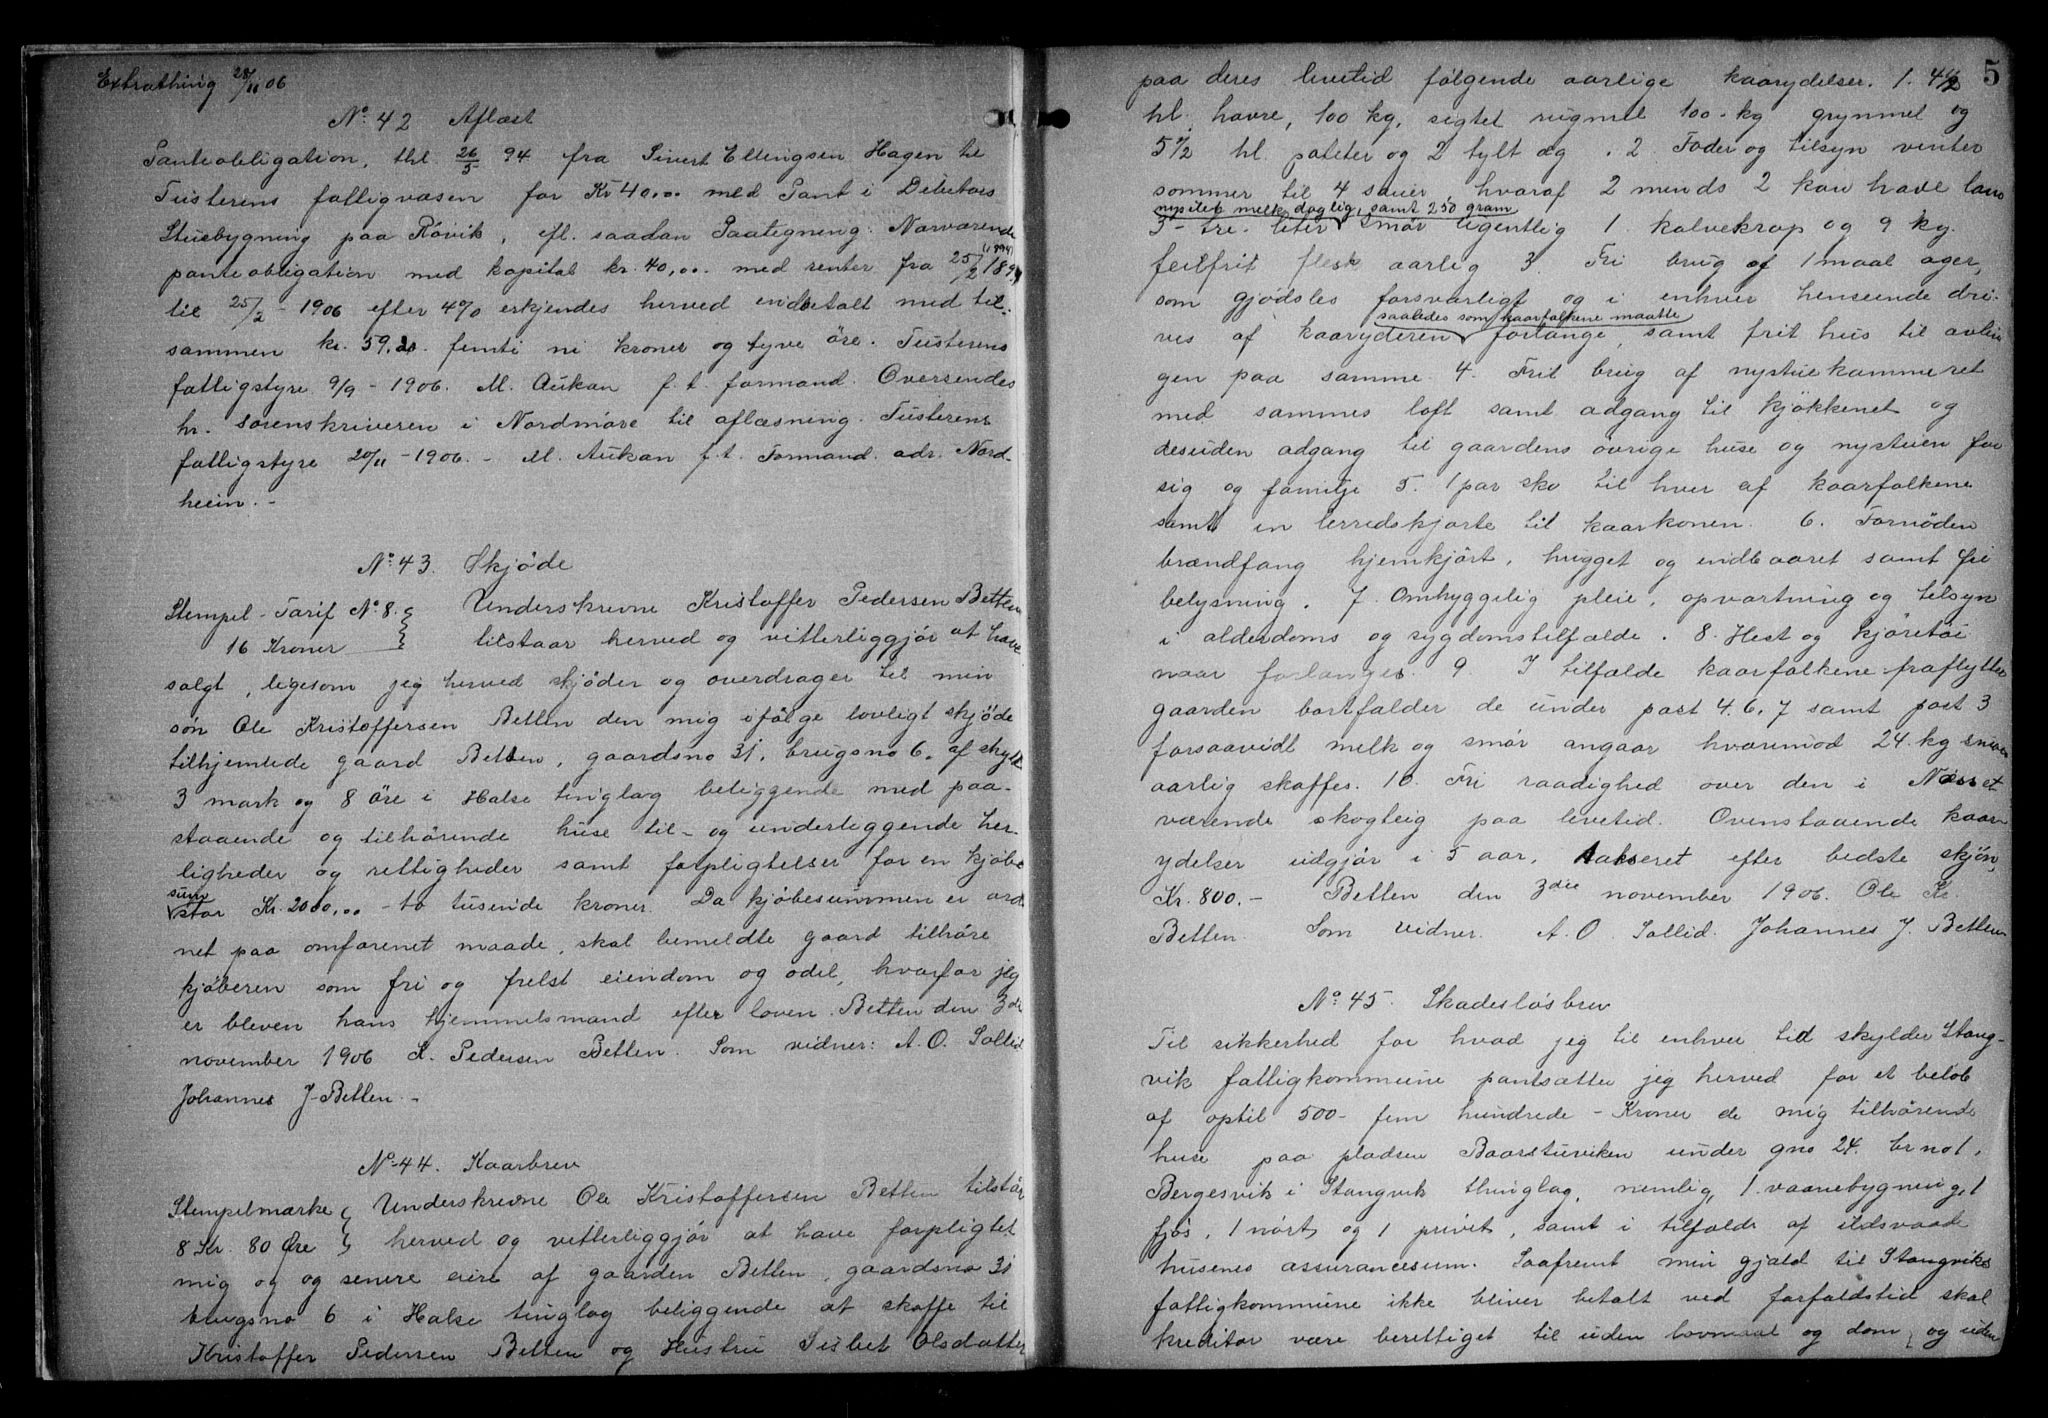 Extrathing 28/11 06
No. 42 Aflæst
Panteobligation, thl. 26/5 94 fra Sivert Ellingsen Hagen til
Tusterens fattigvæsen for Kr 40,00 med Pant i Debitors
Stuebygning paa Røvik, efl. saadan Paategning: Nærværende
panteobligation med kapital kr. 40,00 med renter fra 25/2 189 (1894)
til 25/2 - 1906 efter 4% erkjendes herved indbetalt med til-
sammen kr. 59,20 femti ni kroner og tyve øre. Tusterens
fattigstyre 9/9 - 1906. M. Aukan f. t. formand. Oversendes
hr. sorenskriveren i Nordmøre til aflæsning. Tusterens
fattigstyre 20/11 - 1906. - M. Aukan f. t. Formand. adr. Nord-
heim. -
No. 43. Skjøde
Stempel-Tarif No. 8. Underskrevne Kristoffer Pedersen Betten
16 Kroner tilstaar herved og vitterliggjør at have
solgt, ligesom jeg herved skjøder og overdrager til min
søn Ole Kristoffersen Betten den mig ifølge lovligt skjøde
tilhjemlede gaard Betten, gaardsno 31, brugsno 6. af skyld
3 mark og 8 øre i Halse tinglag beliggende med paa-
staaende og tilhørende huse til- og underliggende her-
ligheder og rettigheder samt forpligtelser for en kjøbe
sum
stor Kr. 2000,00 - to tusende kroner. Da kjøbesummen er ord
net paa omforenet maade, skal bemeldte gaard tilhøre
kjøberen som fri og frelst eiendom og odel, hvorfor jeg
er bleven hans hjemmelsmand efter loven. Betten den 3die
november 1906 K. Pedersen Betten. Som vidner: A. O. Sollid
Johannes J. Betten. -
No. 44. Kaarbrev
Stempelmærke Underskrevne Ole Kristoffersen Betten tilstår
8 Kr. 80 Øre herved og vitterliggjør at have forpligtet
mig og og senere eiere af gaarden Betten, gaardsno 31
brugsno 6 i Halse tinglag beliggende at skaffe til
Kristoffer Pedersen Betten og Hustru Sisbet Olsdatter
5
paa deres levetid følgende aarlige kaarydelser. 1. 4 1/2
hl. havre, 100 kg, sigtet rugmel 100 kg grynmel og
5 1/2 hl. poteter og 2 tylt æg. 2. Foder og tilsyn vinter
sommer til 4 sauer hvoraf 2 mends 2 kan have lam
nysilet melk daglig, samt 250 gram
3 - tre - liter smør ugentlig 1 kalvekrop og 9 kg.
feilfrit flesk aarlig 3. Fri brug af 1 maal ager,
som gjødsles forsvarligt og i enhver henseende dri-
saaledes som kaarfolkene maatte
ves af kaaryderen forlange, samt frit hus til avlin
gen paa samme. 4. Frit brug af nystuekammeret
med sammes loft samt adgang til kjøkkenet og
desuden adgang til gaardens øvrige huse og nystuen for
sig og familje 5. 1 par sko til hver af kaarfolkene
samt en lerredskjorte til kaarkonen. 6. Fornøden
brændfang hjemkjørt, hugget og indbaaret samt fri
belysning. 7. Omhyggelig pleie, opvartning og tilsyn
i alderdoms og sygdomstilfælde. 8. Hest og kjøretøi
naar forlanges. 9. I tilfælde kaarfolkene fraflytter
gaarden bortfalder de under post 4. 6. 7 samt post 3
forsaavidt melk og smør angaar hvorimod 24 kg smør
aarlig skaffes. 10. Fri raadighed over den i Næsset
værende skogteig paa levetid. Ovenstaaende kaar-
ydelser udgjør i 5 aar, takseret efter bedste skjøn,
Kr. 800. - Betten den 3die november 1906. Ole Kr.
Betten. Som vidner. A. O. Sollid. Johannes J. Betten
No. 45. Skadesløsbrev
Til sikkerhed for hvad jeg til enhver tid skylder Stang-
vik fattigkommune pantsætter jeg herved for et beløb
af optil 500 - fem hundrede - Kroner de mig tilhørende
huse paa pladsen Baarstuviken under gno 24. br no 1,
Bergesvik i Stangvik thinglag, nemlig, 1 vaanebygning, 1
fjøs, 1 nørt og 1 privet, samt i tilfælde af ildsvaade
husenes assurancesum. Saafremt min gjæld til Stangviks
fattigkommune ikke bliver betalt ved forfaldstid skal
kreditor være berettiget til uden lovmaal og dom, og uden